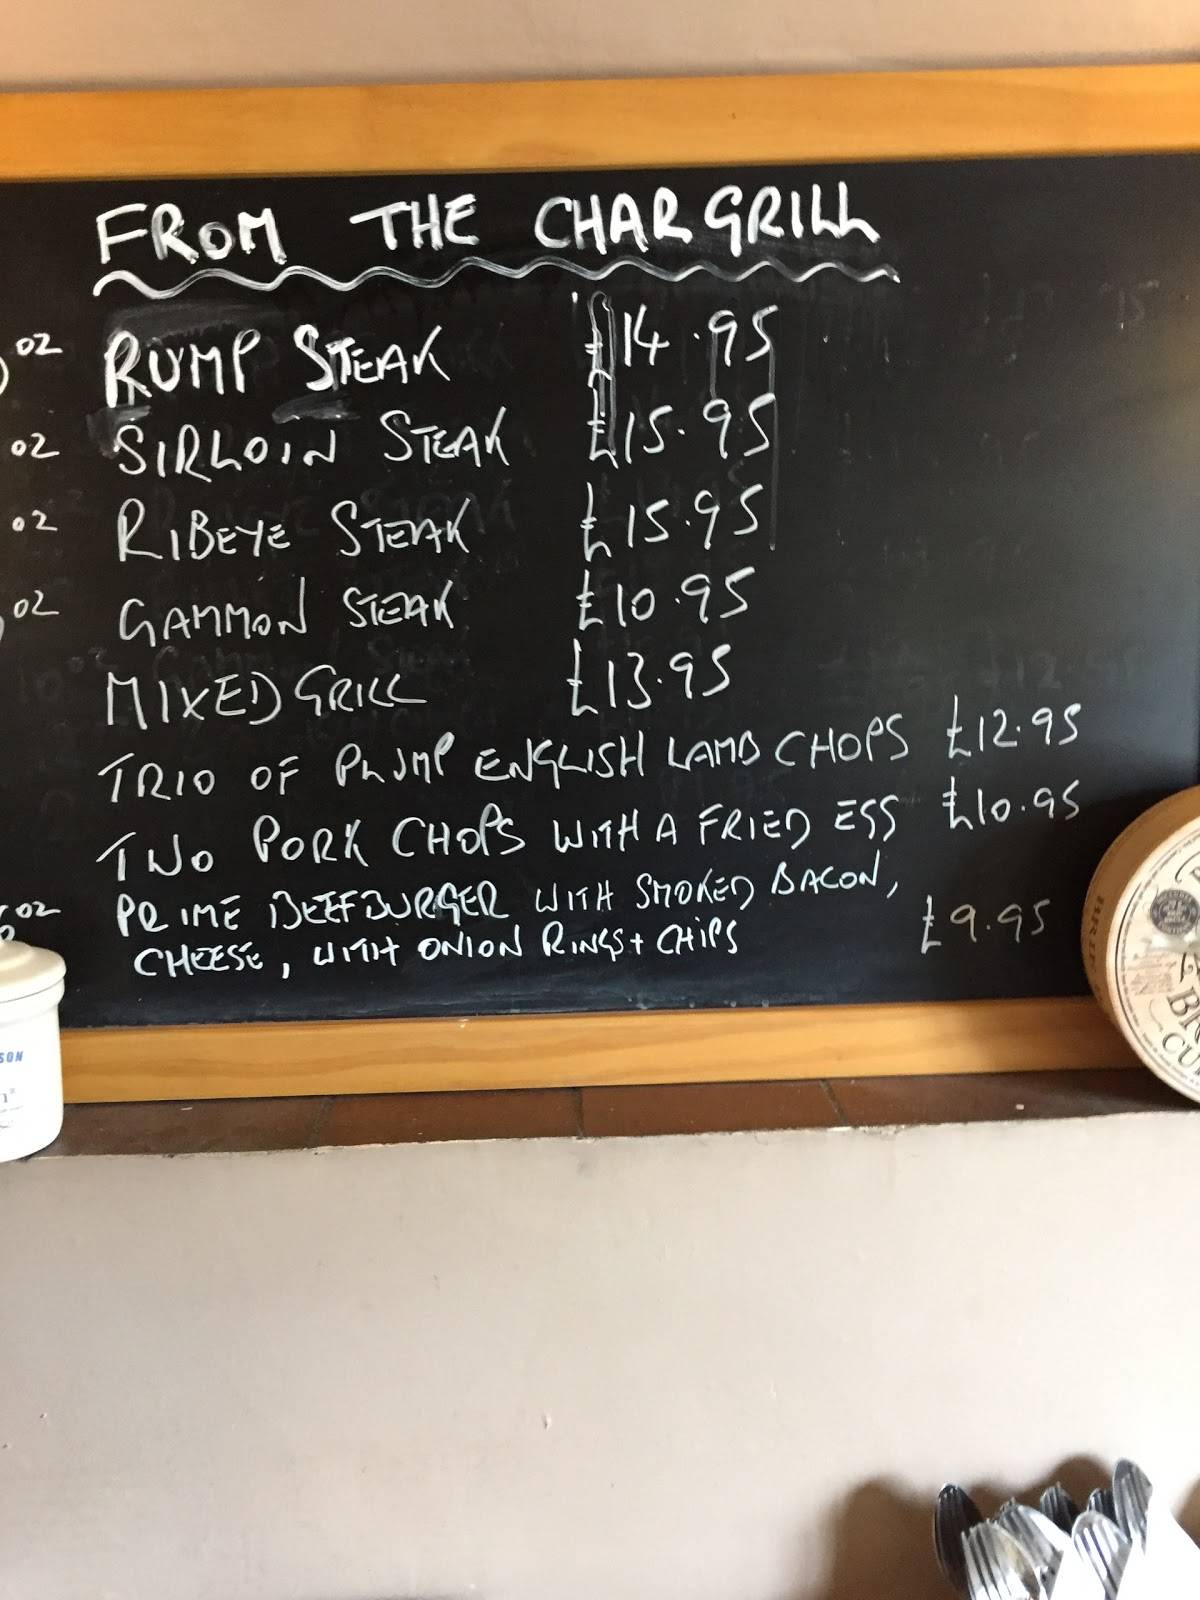 FROM THE CHARGRILL
OZ RUMP STEAK £14.95
OZ SIRLOIN STEAK £15.95
OZ RIBEYE STEAK £15.95
OZ GAMMON STEAK £10.95
MIXED GRILL £13.95
TRIO OF PLUMP ENGLISH LAMB CHOPS £12.95
TWO PORK CHOPS WITH A FRIED EGG £10.95
OZ PRIME BEEFBURGER WITH SMOKED BACON,
CHEESE, WITH ONION RINGS + CHIPS £9.95
SON